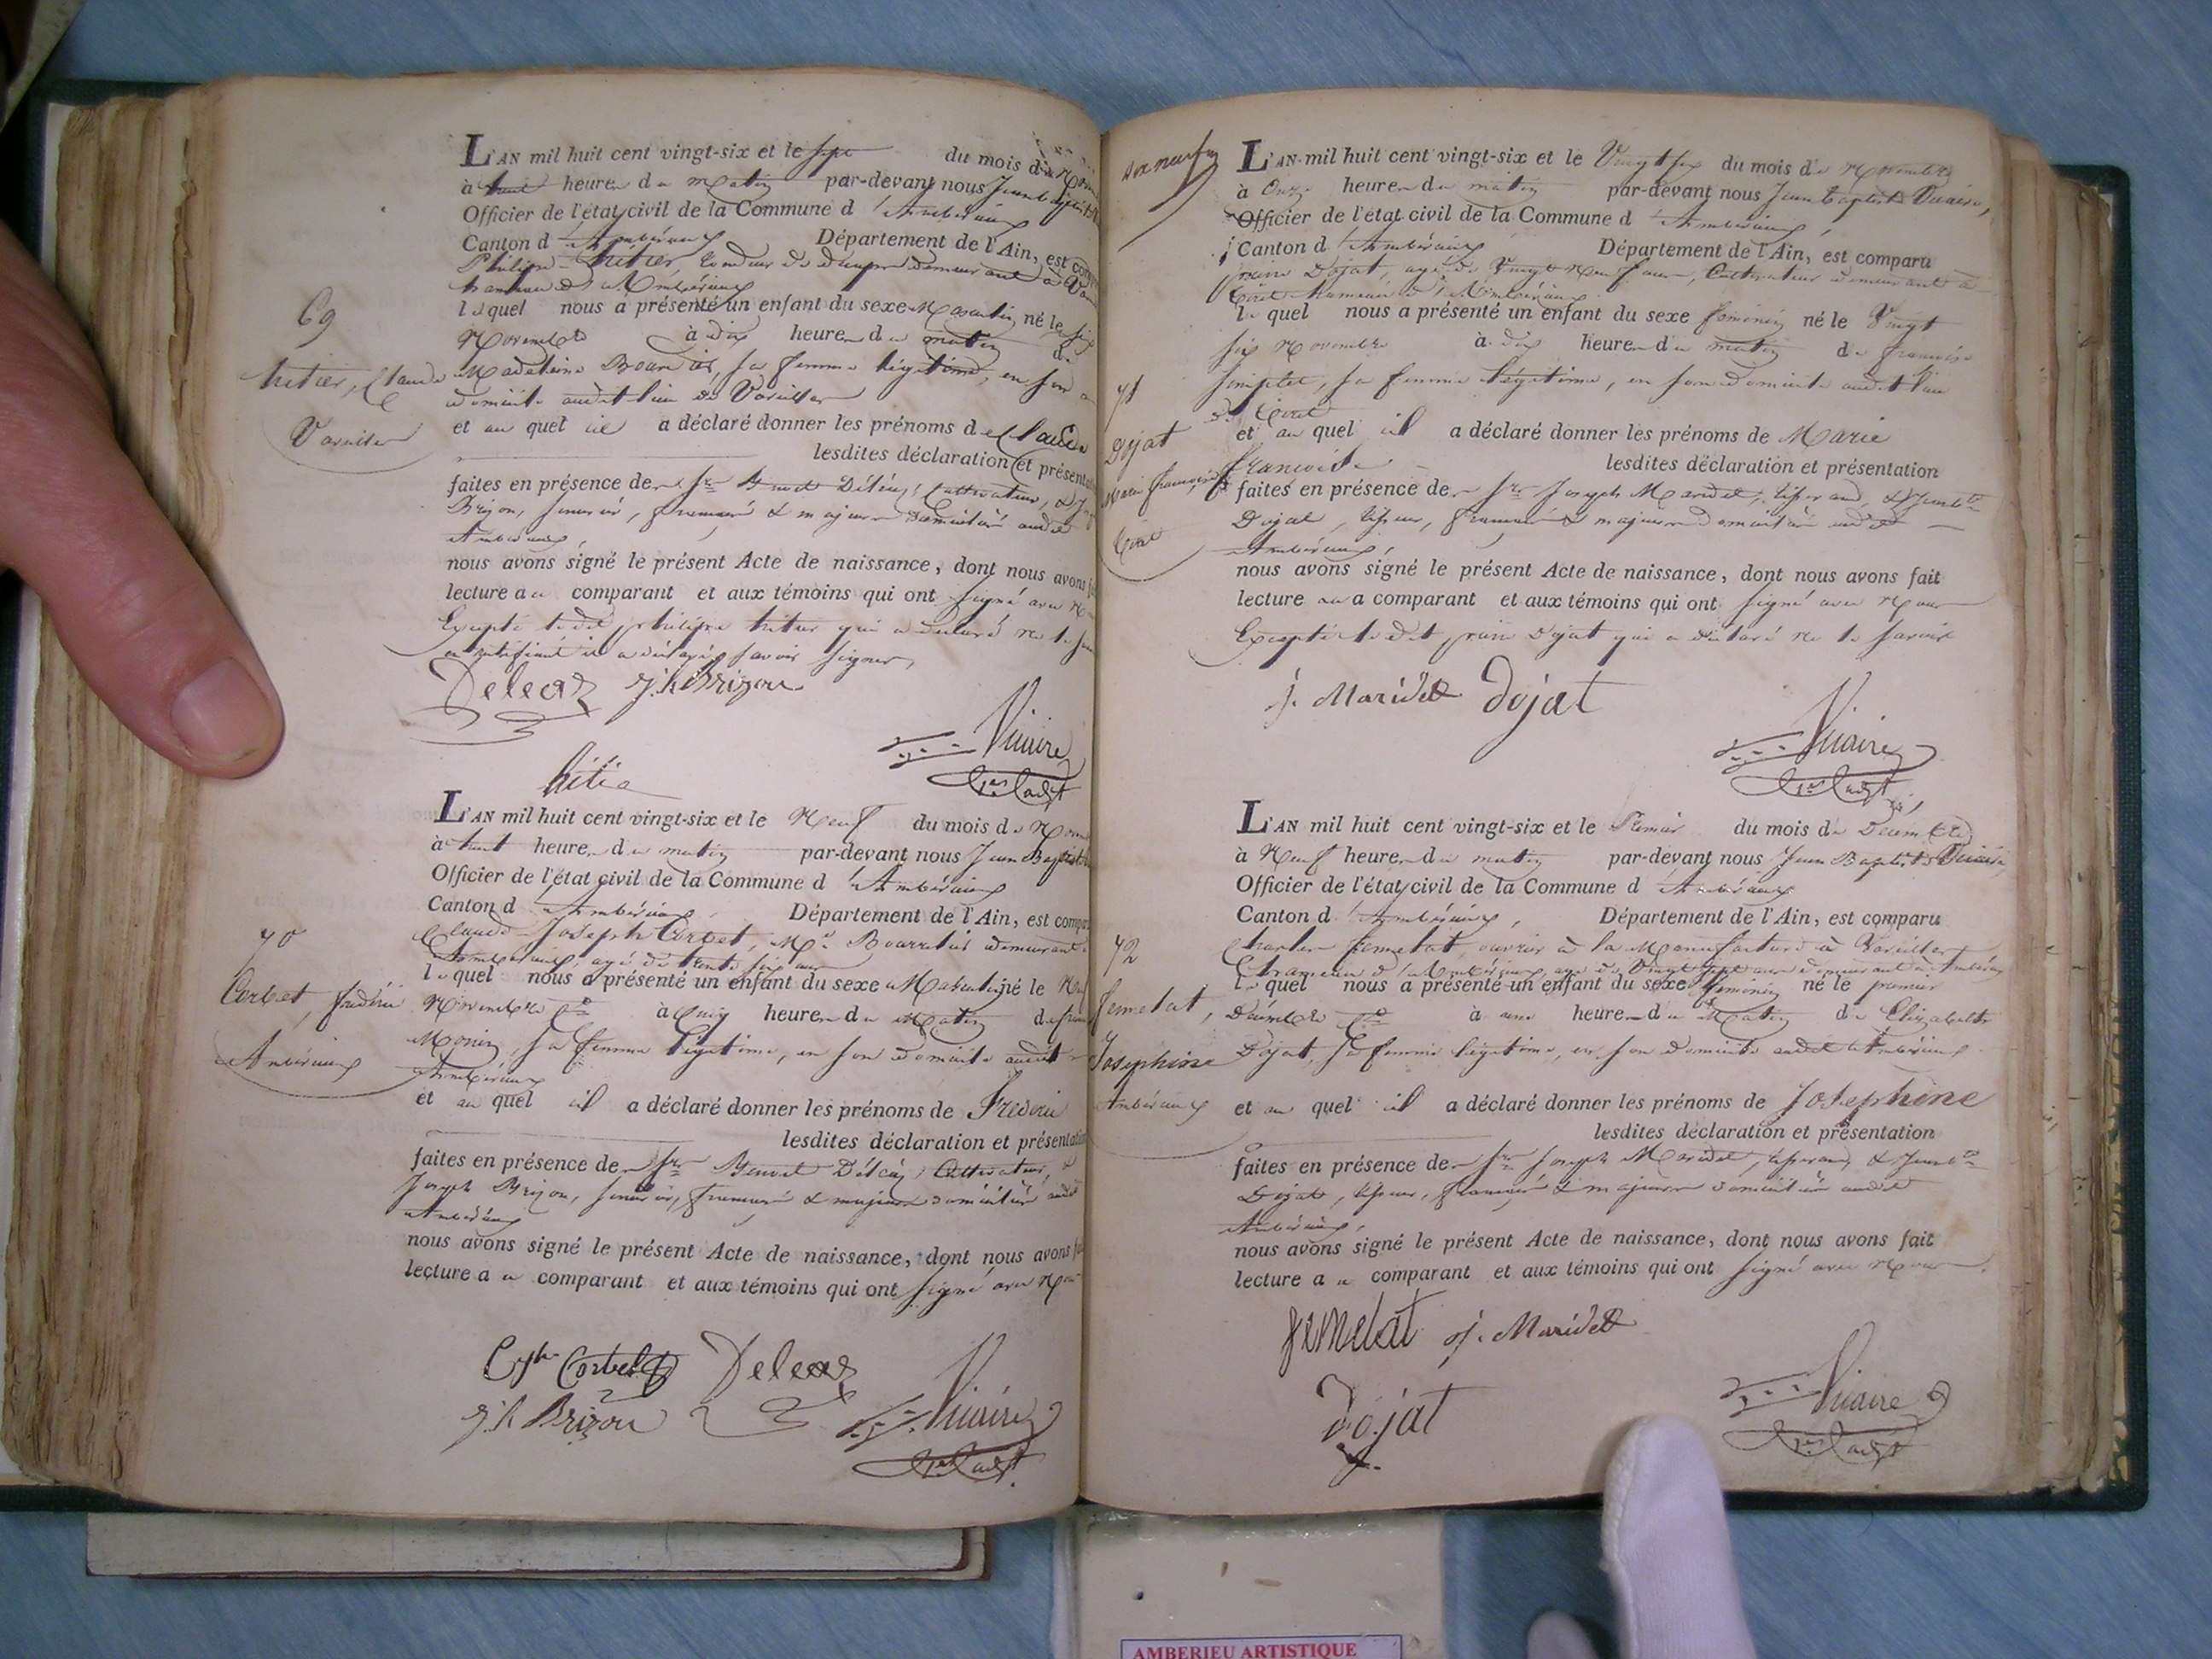 L'AN mil huit cent vingt-six et le sept du mois de
à huit heures du matin par-devant nous Jean Baptiste
Officier de l'état civil de la Commune d'Ambérieux
Canton d'Ambérieux Département de l'Ain, est
Philippe hitier demeurant à
hameau d'Ambérieux
lequel nous a présenté un enfant du sexe Masculin né le six
69
Novembre à dix heures du matin de
hitier, Claude
Madelaine sa femme légitime, en son
domicile audit lieu de Vareilles
Vareilles
et au quel il a déclaré donner les prénoms de Claude
lesdites déclaration et
faites en présence des Srs Benoit cultivateur, &
Brizon, français & majeurs domiciliés audit
Ambérieux
nous avons signé le présent Acte de naissance, dont nous avons
lecture au comparant et aux témoins qui ont signé avec
Excepté ledit philippe hitier qui a déclaré ne le
savoir signer,
J.h Brizon
Vicaire
L'AN mil huit cent vingt-six et le Neuf du mois de
à huit heures du matin par-devant nous Jean Baptiste
Officier de l'état civil de la Commune d'Ambérieux
Canton d'Ambérieux Département de l'Ain, est
70
Claude Joseph Corbet, demeurant
Ambérieux, agé de trente six ans
lequel nous a présenté un enfant du sexe Masculin né le
Corbet, frédéric
Novembre à cinq heures du Matin de
Monin, sa femme légitime, en son domicile audit
Ambérieux
Ambérieux
et au quel il a déclaré donner les prénoms de Frédéric
lesdites déclaration et
faites en présence des Srs Benoit cultivateur, &
Joseph Brizon, français & majeurs domiciliés audit
Ambérieux
nous avons signé le présent Acte de naissance, dont nous avons
lecture au comparant et aux témoins qui ont signé avec
Corbet
J.h Brizon Vicaire
L'AN mil huit cent vingt-six et le Vingt six du mois de Novembre
à Onze heures du matin par-devant nous Jean Baptiste Vicaire,
Officier de l'état civil de la Commune d'Ambérieux,
Canton d'Ambérieux Département de l'Ain, est comparu
Dojat, agé de Vingt Neuf ans, Cultivateur demeurant à
hameau d'Ambérieux
lequel nous a présenté un enfant du sexe féminin né le Vingt
six Novembre à dix heures du matin de françoise
71
sa femme légitime, en son domicile audit lieu
Dojat
et au quel il a déclaré donner les prénoms de Marie
Françoise lesdites déclaration et présentation
Marie françoise
faites en présence des Srs Joseph Maridet, tisserand, & Jean Bte
Dojat, tisseur, français & majeurs domiciliés audit
Ambérieux,
nous avons signé le présent Acte de naissance, dont nous avons fait
lecture au comparant et aux témoins qui ont signé avec Nous
Excepté ledit Dojat qui a déclaré ne le savoir
J. Maridet Dojat
Vicaire
L'AN mil huit cent vingt-six et le Premier du mois de Décembre
à Neuf heures du matin par-devant nous Jean Baptiste Vicaire,
Officier de l'état civil de la Commune d'Ambérieux
Canton d'Ambérieux, Département de l'Ain, est comparu
72
Charles femelat, ouvrier à la Manufacture à Vareilles
hameau d'Ambérieux, agé de Vingt sept ans demeurant à Ambérieux
lequel nous a présenté un enfant du sexe féminin né le premier
femelat,
Décembre à une heures du Matin de Elizabeth
Josephine
Dojat, sa femme légitime, en son domicile audit Ambérieux
Ambérieux
et au quel il a déclaré donner les prénoms de Josephine
lesdites déclaration et présentation
faites en présence des Srs Joseph Maridet, tisserand, & Jean Bte
Dojat, tisseur, français & majeurs domiciliés audit
Ambérieux,
nous avons signé le présent Acte de naissance, dont nous avons fait
lecture au comparant et aux témoins qui ont signé avec Nous
femelat J. Maridet
Dojat
Vicaire
AMBERIEU ARTISTIQUE